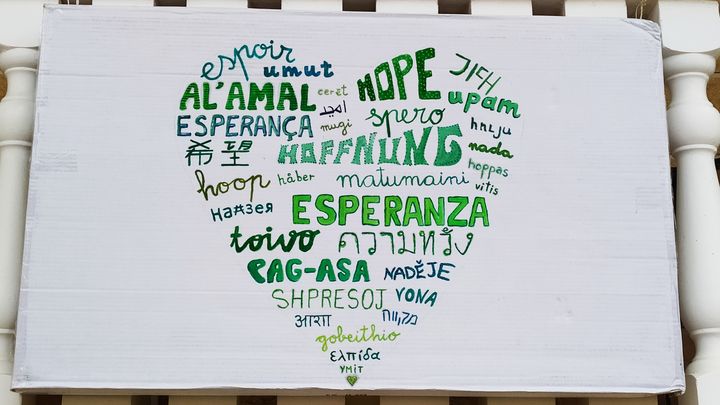 espoir
umut
HOPE
AL'AMAL
ceret
upam
امید
spero
ESPERANÇA
mugi
希望
HOFFNUNG
nada
hoppas
hoop
håber
matumaini
vitis
ESPERANZA
toivo
ความหวัง
PAG-ASA
NADĚJE
SHPRESOJ
VONA
आशा
gobeithio
ελπίδα
YMiT